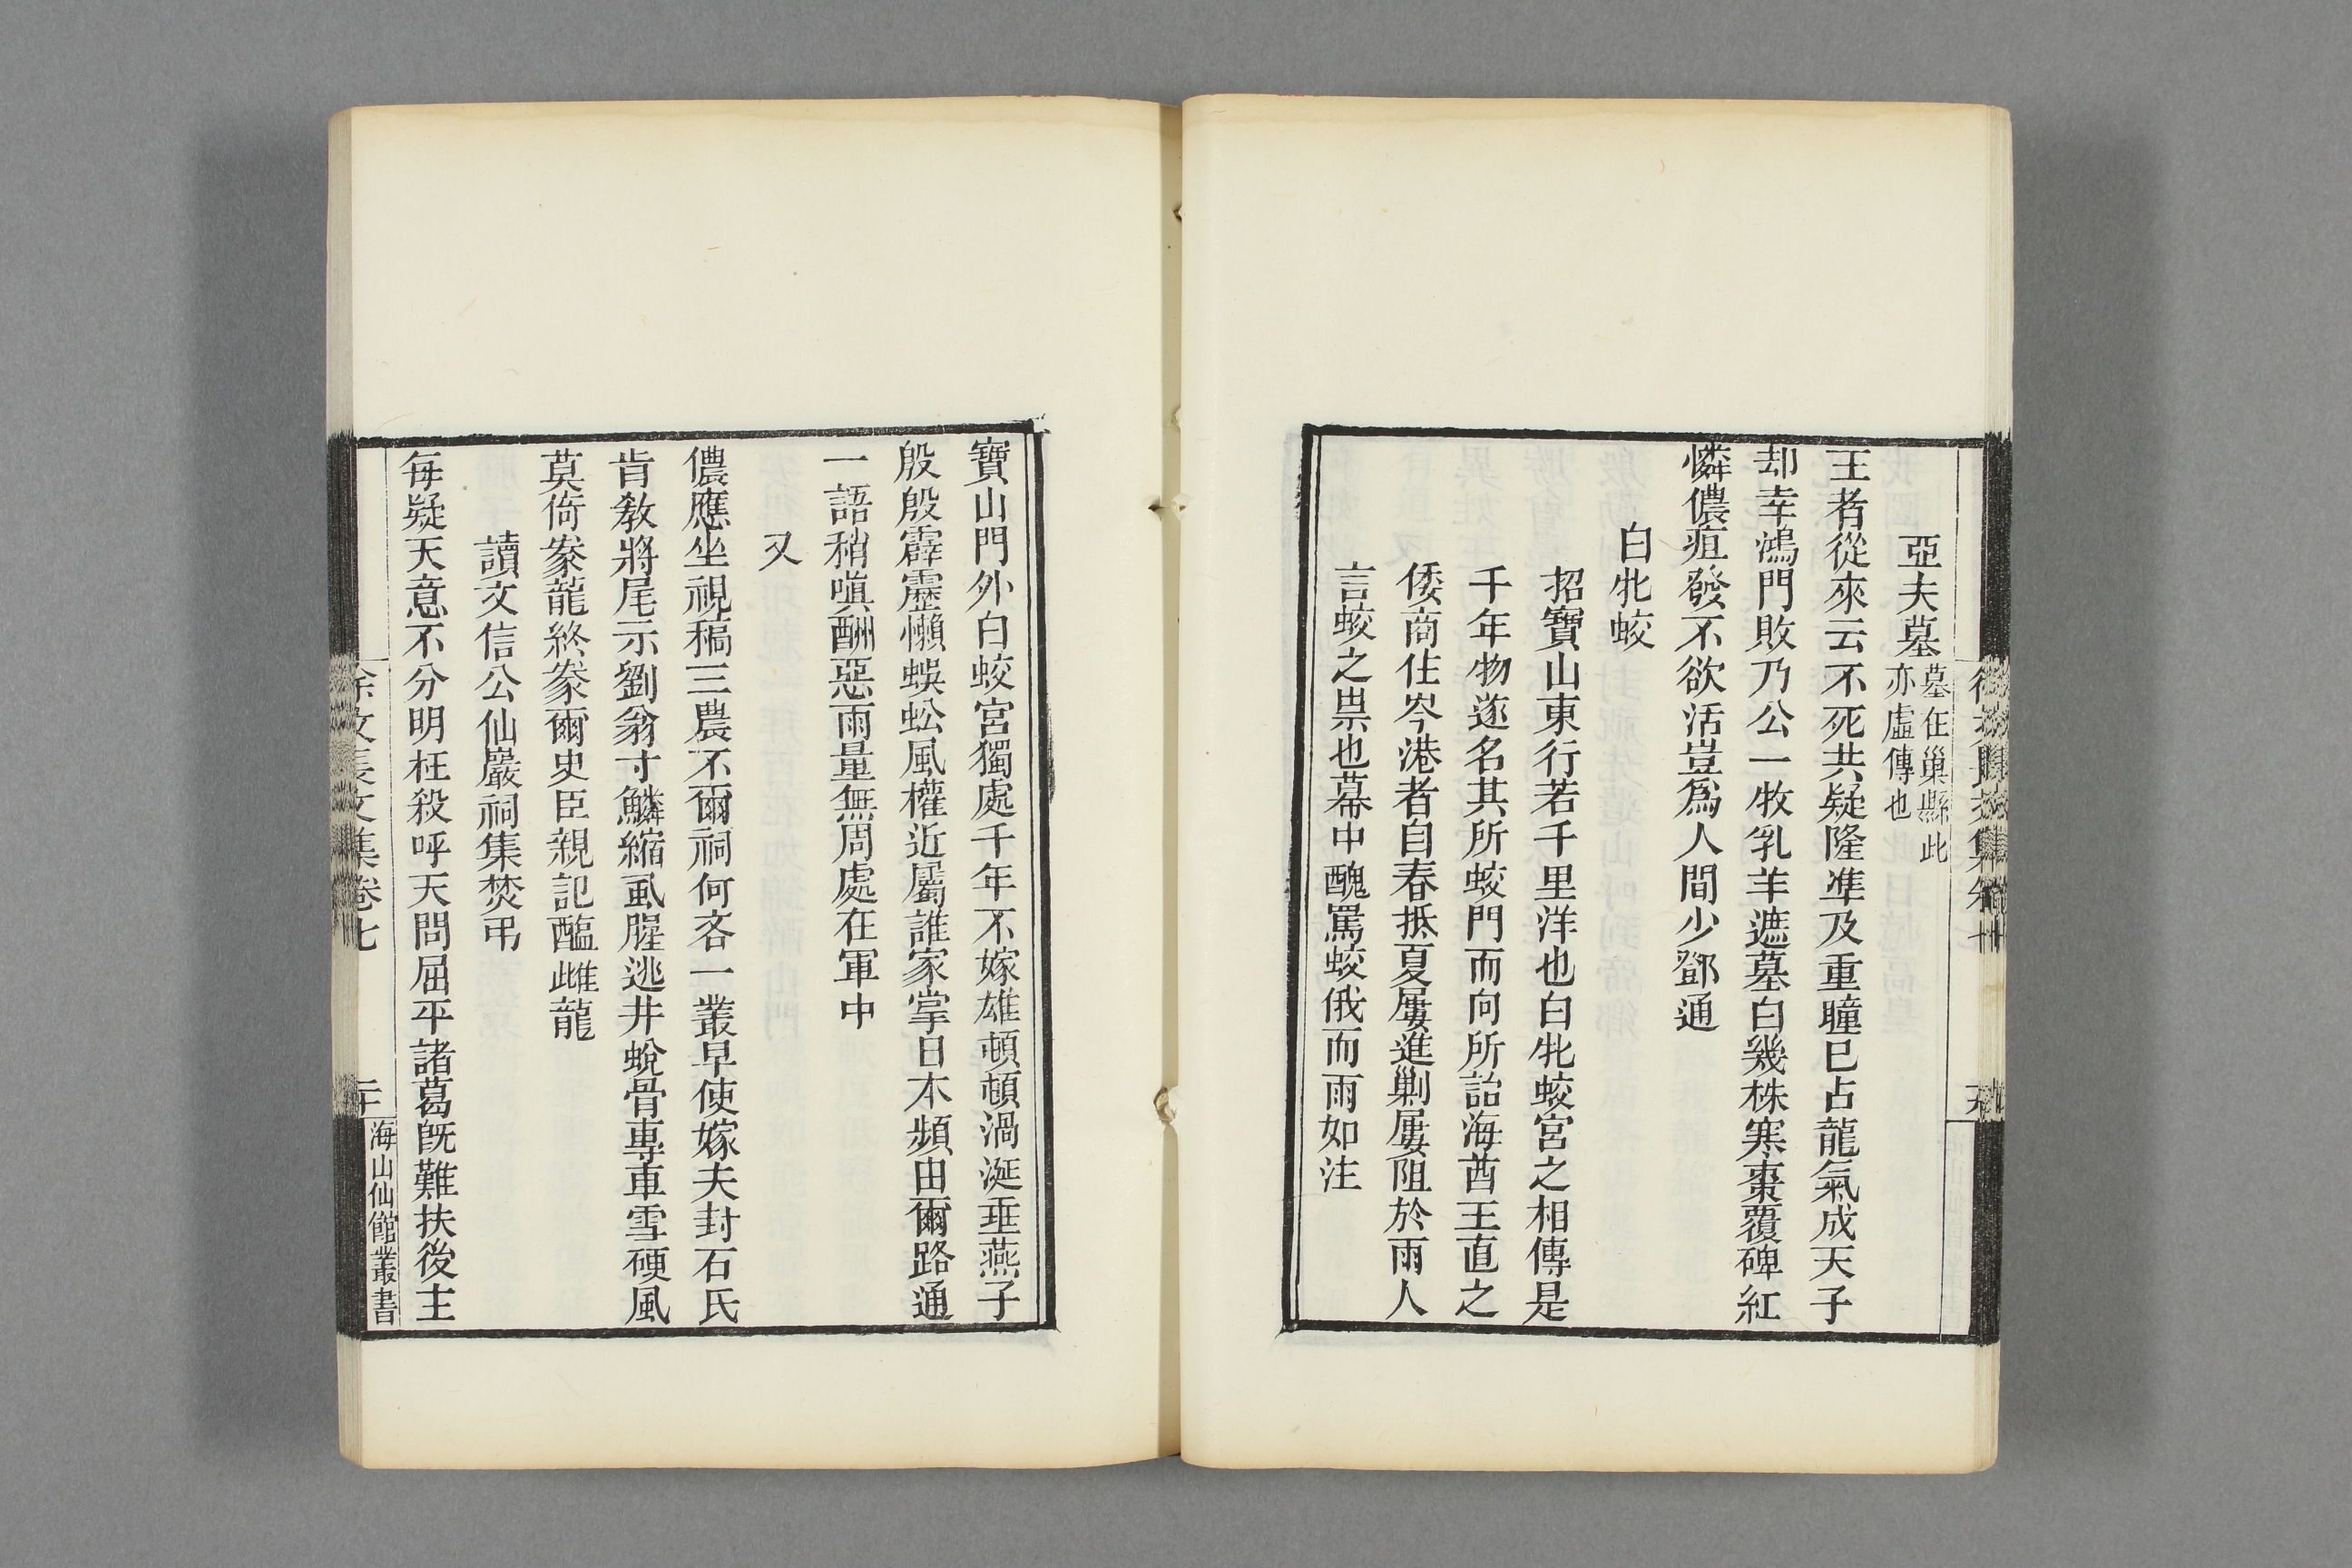 亞夫墓墓在巢縣此亦虛傳也
王者從來云不死共疑隆準及重瞳巳占龍氣成天子
却幸鴻門敗乃公一牧乳羊遮墓白幾株寒棗覆碑紅
憐儂疽發不欲活豈爲人間少鄧通
白牝蛟
招寶山東行若千里洋也白牝蛟宮之相傳是
千年物遂名其所蛟門而向所詒海酋王直之
倭商住岑港者自春抵夏屢進剿屢阻於雨人
言蛟之祟也幕中醜罵蛟俄而雨如注
寶山門外白蛟宮獨處千年不嫁雄頓頓渦涎垂燕子
殷殷霹靂懶蜈蚣風權近屬誰家掌日本頻由爾路通
一語稍嗔酬惡雨量無周處在軍中
又
儂應坐視稿三農不爾祠何吝一叢早使嫁夫封石氏
肯教將尾示劉翁寸鱗縮虱腥逃井蛻骨專車雪硬風
莫倚豢龍終豢爾史臣親記醢雌龍
讀文信公仙巖祠集焚弔
每疑天意不分明枉殺呼天問屈平諸葛旣難扶後主
徐文長文集卷七
二十
海山仙館叢書